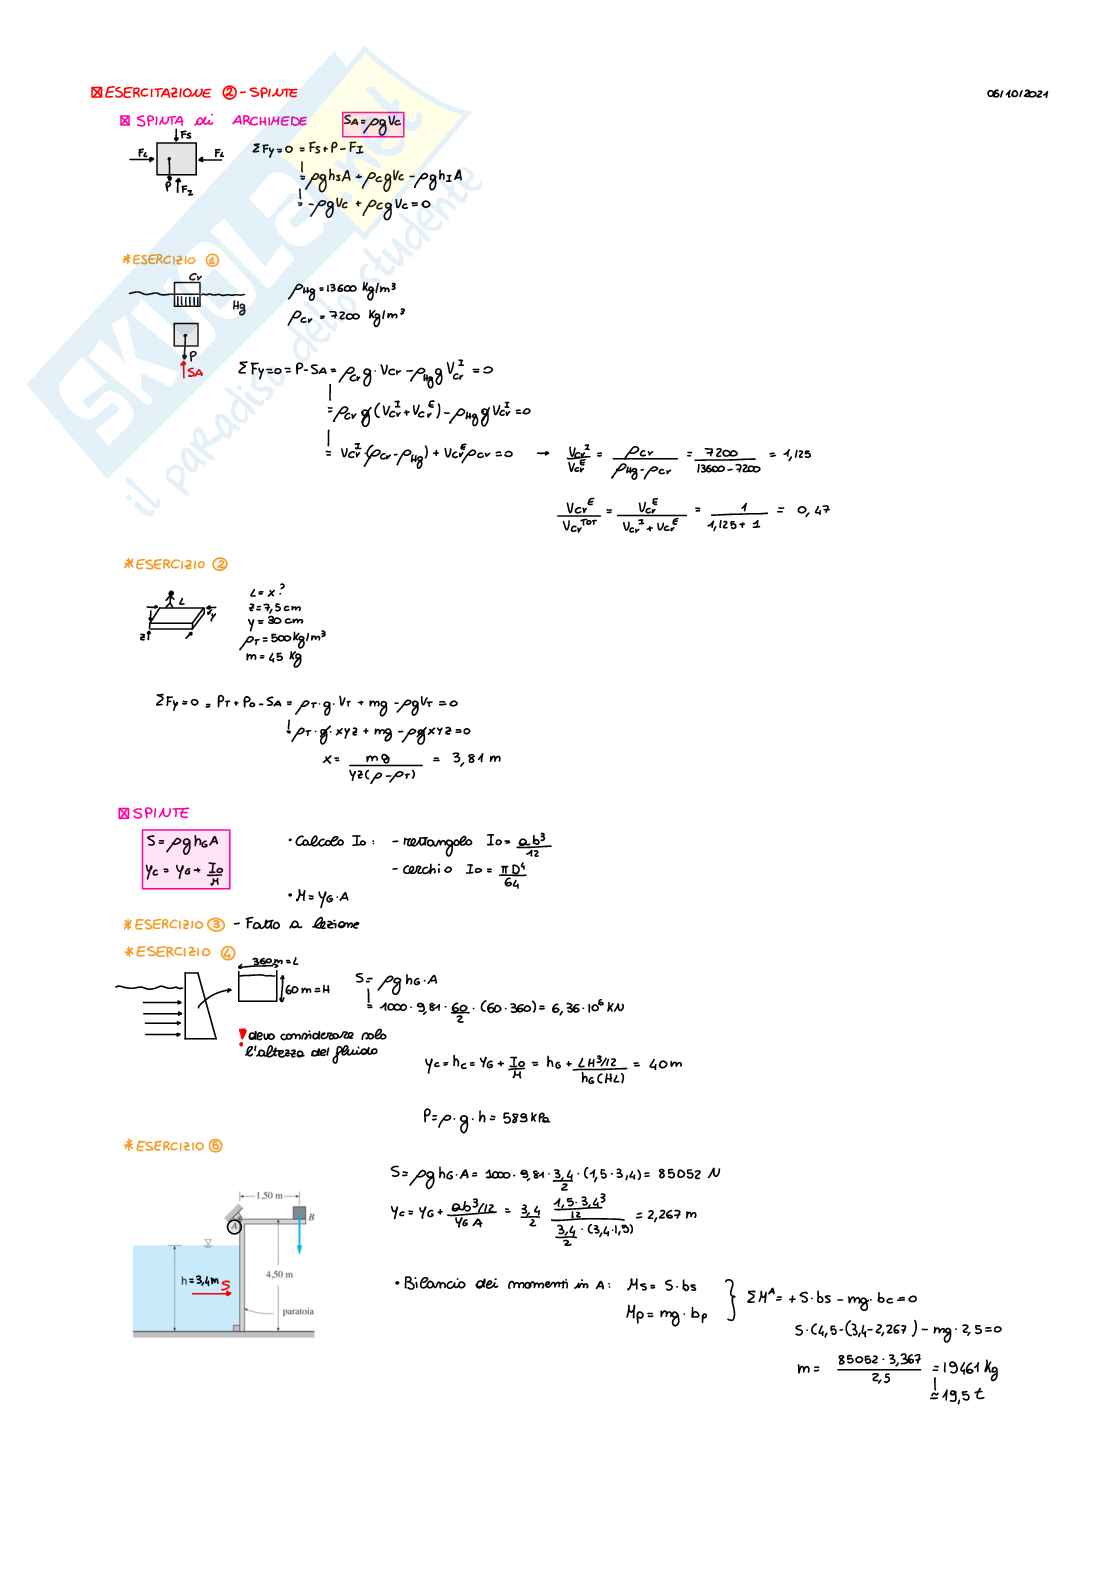 ESERCITAZIONE ② - SPINTE
06/10/2021
SPINTA di ARCHIMEDE
S_A = ρgV_C
F_S
F_L
F_L
P
F_I
ΣFy=0 = F_S + P - F_I
= ρgh_SA + ρ_CgV_C - ρgh_IA
= -ρgV_C + ρ_CgV_C = 0
*ESERCIZIO ①
Cr
Hg
P
SA
ρ_Hg = 13600 Kg/m³
ρ_Cr = 7200 Kg/m³
ΣFy=0 = P - S_A = ρ_Cr g · V_Cr - ρ_Hg g V_Cr^I = 0
= ρ_Cr g (V_Cr^I + V_Cr^E) - ρ_Hg g V_Cr^I = 0
= V_Cr^I (ρ_Cr - ρ_Hg) + V_Cr^E ρ_Cr = 0 → V_Cr^I / V_Cr^E = ρ_Cr / (ρ_Hg - ρ_Cr) = 7200 / (13600 - 7200) = 1,125
V_Cr^E / V_Cr^TOT = V_Cr^E / (V_Cr^I + V_Cr^E) = 1 / (1,125 + 1) = 0,47
*ESERCIZIO ②
L
y
z
L = x?
z = 7,5 cm
y = 30 cm
ρ_T = 500 Kg/m³
m = 45 Kg
ΣFy=0 = P_T + P_O - S_A = ρ_T · g · V_T + mg - ρgV_T = 0
ρ_T · g · xyz + mg - ρgxyz = 0
x = mg / yz(ρ - ρ_T) = 3,81 m
SPINTE
S = ρgh_GA
y_C = y_G + I_O/M
• Calcolo I_O: - rettangolo I_O = ab³/12
- cerchio I_O = πD⁴/64
• M = y_G · A
*ESERCIZIO ③ - Fatto a lezione
*ESERCIZIO ④
360 m = L
60 m = H
! devo considerare solo
l'altezza del fluido
S = ρgh_G · A
= 1000 · 9,81 · 60/2 · (60 · 360) = 6,36 · 10⁶ KN
y_C = h_C = y_G + I_O/M = h_G + (LH³/12) / (h_G(HL)) = 40 m
P = ρ · g · h = 589 kPa
*ESERCIZIO ⑥
1,50 m
A
B
h = 3,4 m
S
4,50 m
paratoia
S = ρgh_G · A = 1000 · 9,81 · 3,4/2 · (1,5 · 3,4) = 85052 N
y_C = y_G + (ab³/12) / (y_G A) = 3,4/2 (1,5 · 3,4³/12) / (3,4/2 · (3,4 · 1,5)) = 2,267 m
• Bilancio dei momenti in A: M_S = S · b_S
M_P = mg · b_P
} ΣM^A = + S · b_S - mg · b_C = 0
S · (4,5 - (3,4 - 2,267) - mg · 2,5 = 0
m = 85052 · 3,367 / 2,5 = 19461 Kg
≃ 19,5 t
SKUOLA.net
il paradiso dello studente